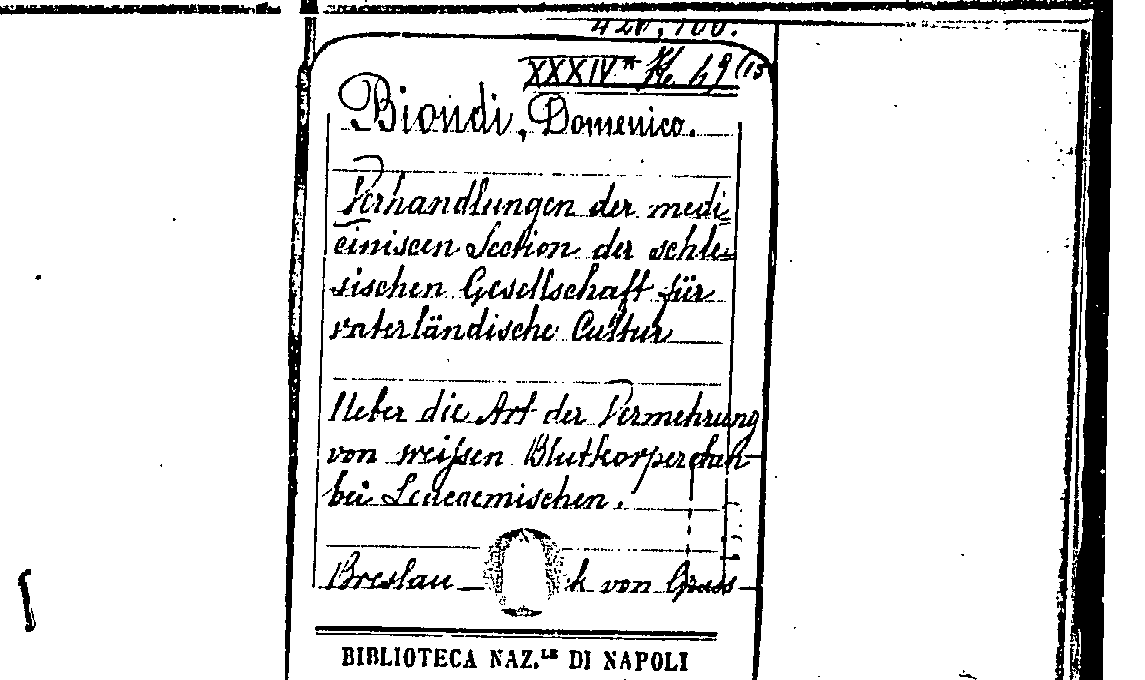 XXXIV
Biondi, Domenico.
Verhandlungen der medi=
ciniscen Section der schle=
sischen Gesellschaft für
vaterländische Cultur
Ueber die Art der Vermehrung
von weissen Blutkorperchen
bei Leucaemischen.
Breslau von Grass
BIBLIOTECA NAZ.LE DI NAPOLI